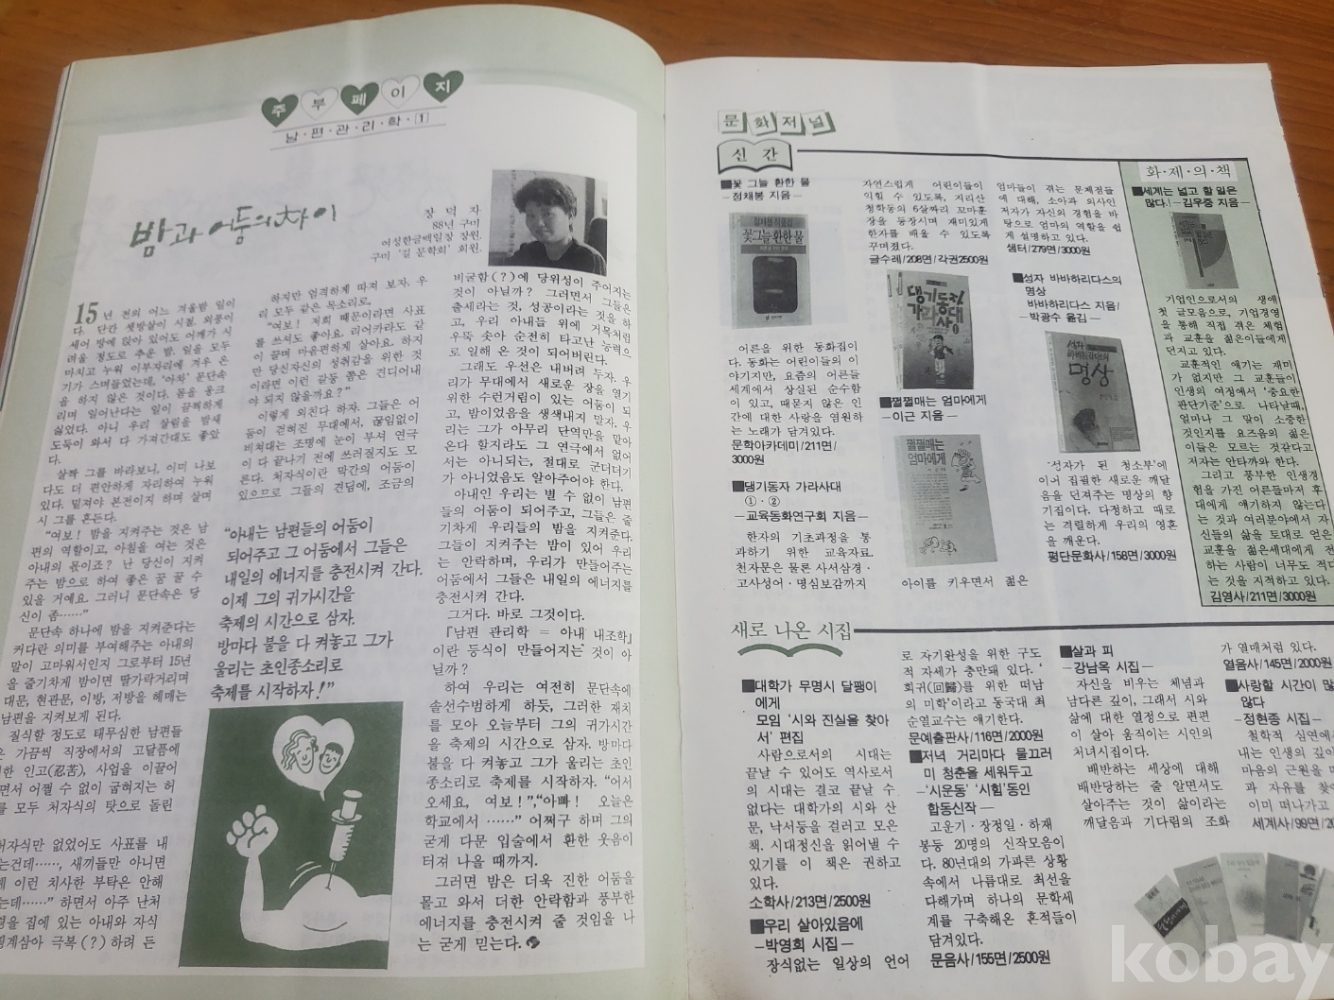 주부페이지
남·편·관·리·학·1
밤과 어둠의 차이
장 덕 자
88년 구미
여성한글백일장 장원.
구미 '길 문학회' 회원.
15년 전의 어느 겨울밤 일이
다. 단칸 셋방살이 시절. 외풍이
세어 방에 앉아 있어도 어깨가 시
려울 정도로 추운 밤. 일을 모두
마치고 누워 이부자리에 겨우 온
기가 스며들었는데, '아차' 문단속
을 하지 않은 것이다. 몸을 웅크
리며 일어난다는 일이 끔찍하게
싫었다. 아니 우리 살림을 밤새
도둑이 와서 다 가져간대도 좋았
다.
살짝 그를 바라보니, 이미 나보
다도 더 편안하게 자리하여 누워
있다. 밑져야 본전이지 하며 살며
시 그를 흔든다.
"여보! 밤을 지켜주는 것은 남
편의 역할이고, 아침을 여는 것은
아내의 몫이죠? 난 당신이 지켜
주는 밤으로 하여 좋은 꿈 꿀 수
있을 거예요. 그러니 문단속은 당
신이 좀……"
문단속 하나에 밤을 지켜준다는
커다란 의미를 부여해주는 아내의
말이 고마워서인지 그로부터 15년
을 줄기차게 밤이면 딸가락거리며
대문, 현관문, 이방, 저방을 헤매는
남편을 지켜보게 된다.
질식할 정도로 태무심한 남편들
은 가끔씩 직장에서의 고달픔에
한 인고(忍苦), 사업을 이끌어
면서 어쩔 수 없이 굽혀지는 허
를 모두 처자식의 탓으로 돌린
처자식만 없었어도 사표를 내
는건데……, 새끼들만 아니면
이런 치사한 부탁은 안해
는데……" 하면서 아주 난처
을 집에 있는 아내와 자식
핑계삼아 극복(?)하려 든
하지만 엄격하게 따져 보자. 우
리 모두 같은 목소리로,
"여보! 저희 때문이라면 사표
를 쓰셔도 좋아요. 리어카라도 같
이 끌며 마음편하게 살아요. 하지
만 당신자신의 성취감을 위한 것
이라면 이런 갈등 쯤은 견디어내
야 되지 않을까요?"
이렇게 외친다 하자. 그들은 어
둠이 걷혀진 무대에서, 끊임없이
비쳐대는 조명에 눈이 부셔 연극
이 다 끝나기 전에 쓰러질지도 모
른다. 처자식이란 막간의 어둠이
있으므로 그들의 견딤에, 조금의
"아내는 남편들의 어둠이
되어주고 그 어둠에서 그들은
내일의 에너지를 충전시켜 간다.
이제 그의 귀가시간을
축제의 시간으로 삼자.
방마다 불을 다 켜놓고 그가
울리는 초인종소리로
축제를 시작하자!"
비굴함(?)에 당위성이 주어지는
것이 아닐까? 그러면서 그들은
출세라는 것, 성공이라는 것을 하
고, 우리 아내들 위에 거목처럼
우뚝 솟아 순전히 타고난 능력으
로 일해 온 것이 되어버린다.
그래도 우선은 내버려 두자. 우
리가 무대에서 새로운 장을 열기
위한 수런거림이 있는 어둠이 되
고, 밤이었음을 생색내지 말자. 우
리는 그가 아무리 단역만을 맡아
온다 할지라도 그 연극에서 없어
서는 아니되는, 절대로 군더더기
가 아니었음도 알아주어야 한다.
아내인 우리는 별 수 없이 남편
들의 어둠이 되어주고, 그들은 줄
기차게 우리들의 밤을 지켜준다.
그들이 지켜주는 밤이 있어 우리
는 안락하며, 우리가 만들어주는
어둠에서 그들은 내일의 에너지를
충전시켜 간다.
그거다. 바로 그것이다.
『남편 관리학 = 아내 내조학』
이란 등식이 만들어지는 것이 아
닐까?
하여 우리는 여전히 문단속에
솔선수범하게 하듯, 그러한 재치
를 모아 오늘부터 그의 귀가시간
을 축제의 시간으로 삼자. 방마다
불을 다 켜놓고 그가 울리는 초인
종소리로 축제를 시작하자. "어서
오세요, 여보!", "아빠! 오늘은
학교에서 ……" 어쩌구 하며 그의
굳게 다문 입술에서 환한 웃음이
터져 나올 때까지.
그러면 밤은 더욱 진한 어둠을
몰고 와서 더한 안락함과 풍부한
에너지를 충전시켜 줄 것임을 나
는 굳게 믿는다.
문화저널
신간
■꽃 그늘 환한 물
—정채봉 지음—
꽃그늘 환한 물
어른을 위한 동화집이
다. 동화는 어린이들의 이
야기지만, 요즘의 어른들
세계에서 상실된 순수함
이 있고, 때묻지 않은 인
간에 대한 사랑을 염원하
는 노래가 담겨있다.
문학아카데미/211면/
3000원
■댕기동자 가라사대
①·②
—교육동화연구회 지음—
한자의 기초과정을 통
과하기 위한 교육자료.
천자문은 물론 사서삼경·
고사성어·명심보감까지
자연스럽게 어린이들이
익힐 수 있도록, 지리산
청학동의 6살짜리 꼬마훈
장을 등장시켜 재미있게
한자를 배울 수 있도록
꾸며졌다.
글수레/208면/각권2500원
댕기동자
가라사대
■쩔쩔매는 엄마에게
—이근 지음—
쩔쩔매는
엄마에게
아이를 키우면서 젊은
엄마들이 겪는 문제점들
에 대해, 소아과 의사인
저자가 자신의 경험을 바
탕으로 엄마의 역할을 쉽
게 설명하고 있다.
샘터/279면/3000원
■성자 바바하리다스의
명상
바바하리다스 지음/
—박광수 옮김—
성자
바바하리다스의
명상
'성자가 된 청소부'에
이어 집필한 새로운 깨달
음을 던져주는 명상의 향
기집이다. 다정하고 때로
는 격렬하게 우리의 영혼
을 깨운다.
평단문화사/158면/3000원
화·제·의·책
■세계는 넓고 할 일은
많다!—김우중 지음—
기업인으로서의 생애
첫 글모음으로, 기업경영
을 통해 직접 겪은 체험
과 교훈을 젊은이들에게
던지고 있다.
교훈적인 얘기는 재미
가 없지만 그 교훈들이
인생의 여정에서 '중요한
판단기준'으로 나타날때,
얼마나 그 말이 소중한
것인지를 요즈음의 젊은
이들은 모르는 것같다고
저자는 안타까와 한다.
그리고 풍부한 인생경
험을 가진 어른들마저 후
대에게 얘기하지 않는다
는 것과 여러분야에서 자
신들의 삶을 토대로 얻은
교훈을 젊은세대에게 전
하는 사람이 너무도 적다
는 것을 지적하고 있다.
김영사/211면/3000원
새로 나온 시집
■대학가 무명시 달팽이
에게
모임 '시와 진실을 찾아
서' 편집
사람으로서의 시대는
끝날 수 있어도 역사로서
의 시대는 결코 끝날 수
없다는 대학가의 시와 산
문, 낙서등을 걸러고 모은
책. 시대정신을 읽어낼 수
있기를 이 책은 권하고
있다.
소학사/213면/2500원
■우리 살아있음에
—박영희 시집—
장식없는 일상의 언어
로 자기완성을 위한 구도
적 자세가 충만돼 있다. '
회귀(回歸)를 위한 떠남
의 미학'이라고 동국대 최
순열교수는 얘기한다.
문예출판사/116면/2000원
■저녁 거리마다 물끄러
미 청춘을 세워두고
—'시운동' '시힘'동인
합동신작—
고운기·장정일·하재
봉등 20명의 신작모음이
다. 80년대의 가파른 상황
속에서 나름대로 최선을
다해가며 하나의 문학세
계를 구축해온 흔적들이
담겨있다.
문음사/155면/2500원
■살과 피
—강남옥 시집—
자신을 비우는 체념과
남다른 깊이, 그래서 시와
삶에 대한 열정으로 편편
이 살아 움직이는 시인의
처녀시집이다.
배반하는 세상에 대해
배반당하는 줄 알면서도
살아주는 것이 삶이라는
깨달음과 기다림의 조화
가 열매처럼 있다.
열음사/145면/2000원
■사랑할 시간이 많
않다
—정현종 시집—
철학적 심연에
내는 인생의 깊이
마음의 근원을
과 자유를 찾아
이미 떠나가고
세계사/99면/20
kobay